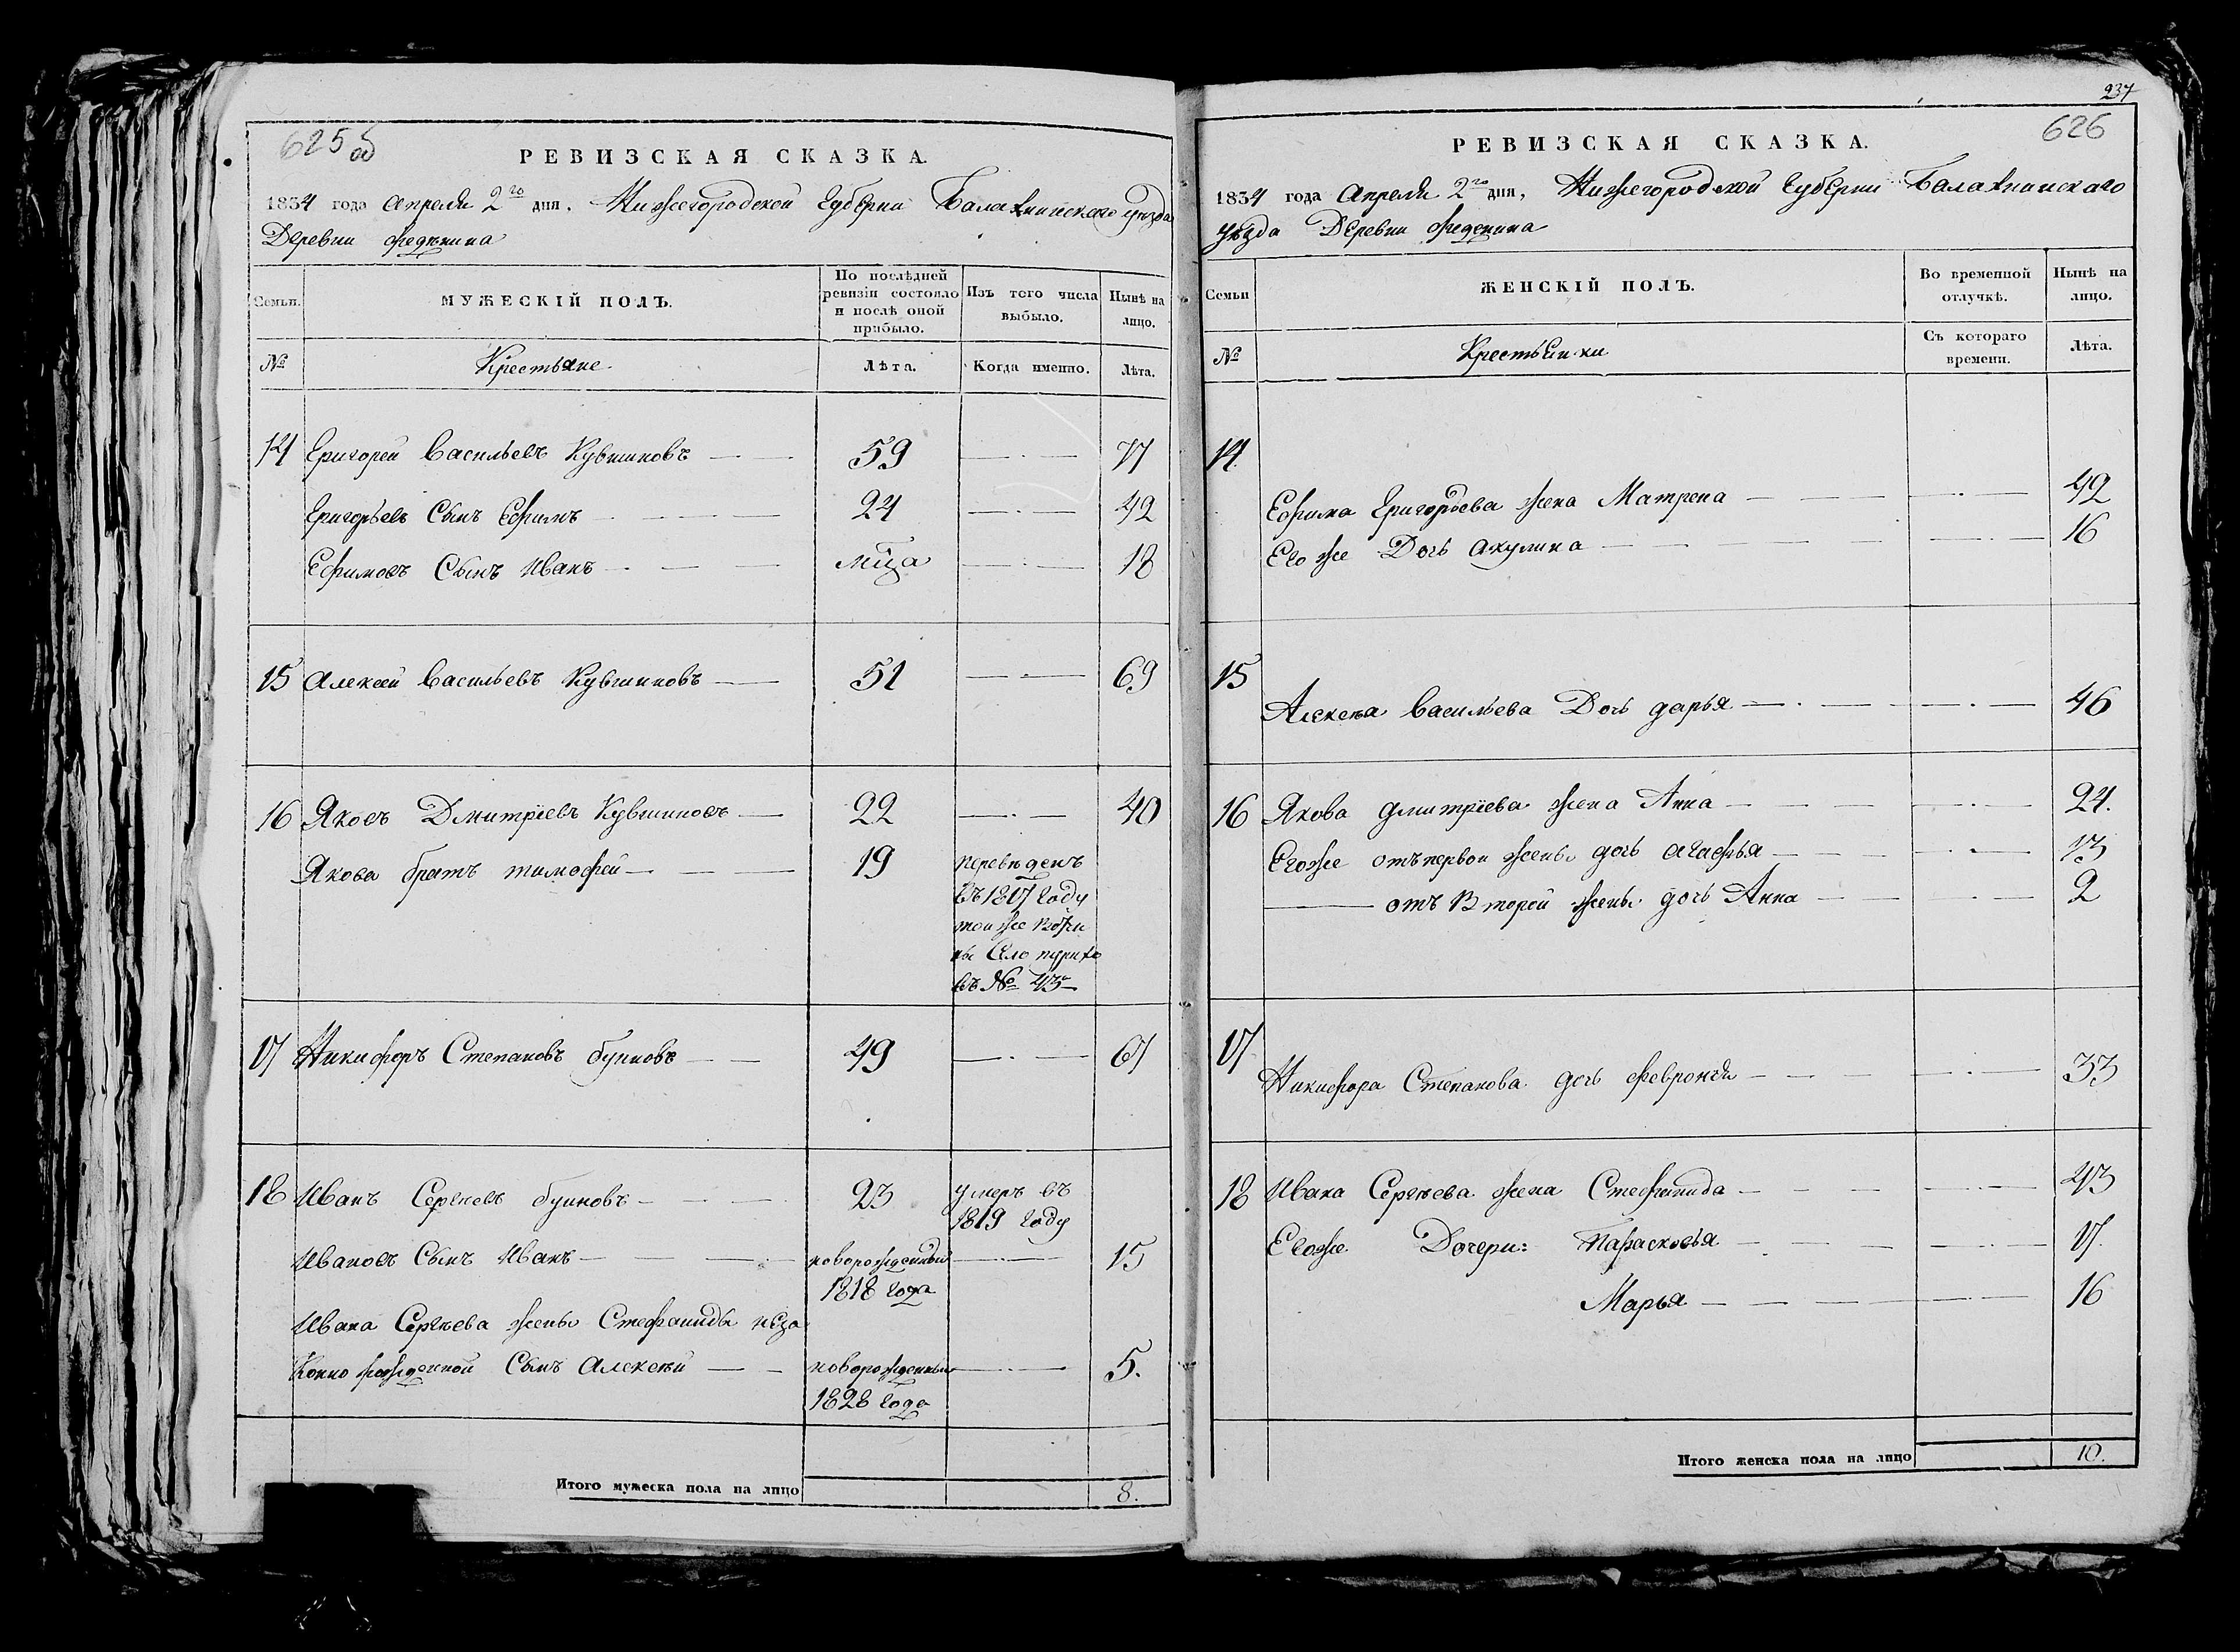 625 об
РЕВИЗСКАЯ СКАЗКА.
1834 года Апреля 2го дня. Нижегородской Губернии Балахнинскаго уезда
Деревни Федякина
Семьи. МУЖЕСКІЙ ПОЛЪ. По послѣдней ревизіи состояло и послѣ оной прибыло. Изъ того числа выбыло. Нынѣ на лицо.
№ Крестьяне Лѣта. Когда именно. Лѣта.
14 Григорей Васильевъ Кувшиновъ 59 77
Григорьевъ Сынъ Ефимъ 24 42
Ефимовъ Сынъ Иванъ мца 18
15 Алексей Васильевъ Кувшиновъ 51 69
16 Яковъ Дмитріевъ Кувшиновъ 22 40
Якова братъ тимофей 19 переведенъ
въ 1817 году
той же вотчи
ны Село пурихо
въ № 43
17 Никифоръ Степановъ буиновъ 49 67
18 Иванъ Сергѣевъ буиновъ 23 умеръ въ
1819 году
Ивановъ Сынъ Иванъ новорожденный 15
1818 года
Ивана Сергѣева жены Стефаниды неза
конно рожденной Сынъ Алексѣй новорожденный 5.
1828 года
Итого мужеска пола на лицо 8.
237
626
РЕВИЗСКАЯ СКАЗКА.
1834 года Апреля 2го дня, Нижегородской Губернии Балахнинскаго
уѣзда Деревни Федякина
Семьи ЖЕНСКІЙ ПОЛЪ. Во временной отлучкѣ. Нынѣ на лицо.
№ Крестьянки Съ котораго времени. Лѣта.
14.
Ефима Григорьева жена Матрена 42
Его же Дочь Акулина 16
15
Алексѣя Васильева Дочь дарья 46
16 Якова дмитріева жена Анна 24.
Егоже отъ первои жены дочь агафья 13
отъ Второй жены дочь Анна 2
17
Никифора Степанова дочь февронья 33
18 Ивана Сергѣева жена Стефанида 43
Егоже Дочери: Парасковья 17.
Марья 16
Итого женска пола на лицо 10.